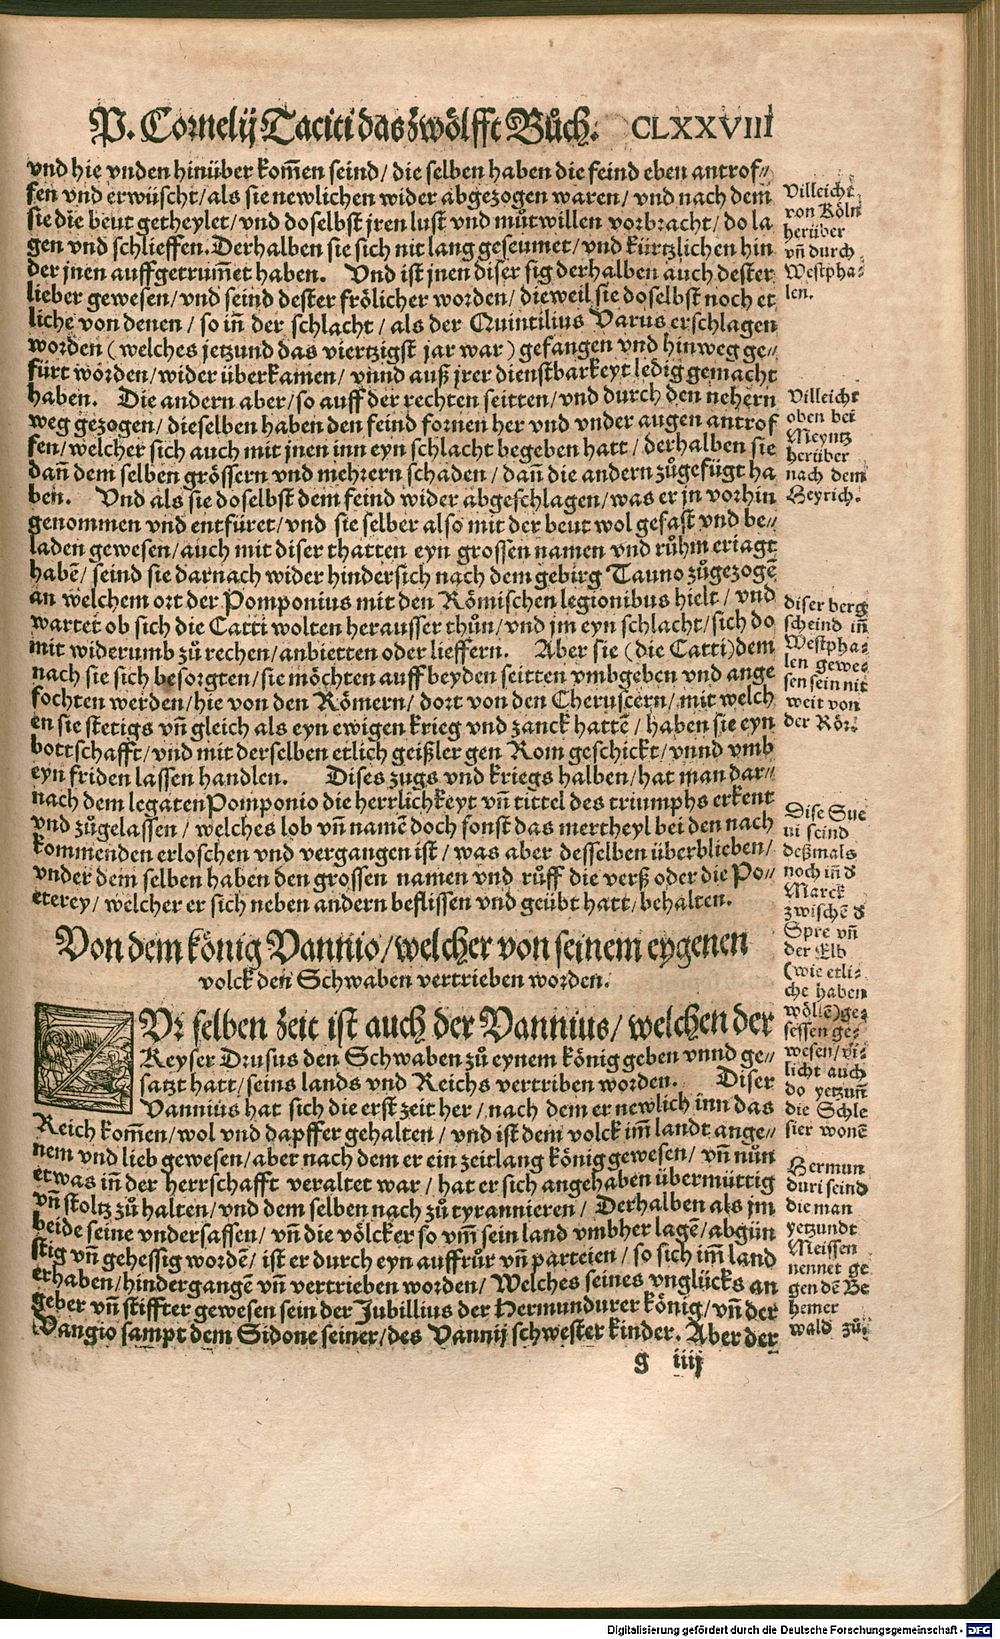 P. Cornelij Taciti das zwölfft Bůch. CLXXVIII
vnd hie vnden hinüber kom̃en seind/ die selben haben die feind eben antrof⸗
fen vnd erwüscht/ als sie newlichen wider abgezogen waren/ vnd nach dem
sie die beut getheylet/ vnd doselbst jren lust vnd můtwillen vorbracht/ do la
gen vnd schlieffen. Derhalben sie sich nit lang geseumet/ vnd kürtzlichen hin
der jnen auffgetrum̃et haben. Vnd ist jnen diser sig derhalben auch dester
lieber gewesen/ vnd seind dester frölicher worden/ dieweil sie doselbst noch et
liche von denen/ so iñ der schlacht/ als der Quintilius Varus erschlagen
worden (welches jetzund das viertzigst jar war) gefangen vnd hinweg ge⸗
fürt worden/ wider überkamen/ vnnd auß jrer dienstbarkeyt ledig gemacht
haben. Die andern aber/ so auff der rechten seitten/ vnd durch den nehern
weg gezogen/ dieselben haben den feind fornen her vnd vnder augen antrof
fen/ welcher sich auch mit jnen inn eyn schlacht begeben hatt/ derhalben sie
dañ dem selben grössern vnd mehrern schaden/ dañ die andern zůgefügt ha
ben. Vnd als sie doselbst dem feind wider abgeschlagen/ was er jn vorhin
genommen vnd entfüret/ vnd sie selber also mit der beut wol gefast vnd be⸗
laden gewesen/ auch mit diser thatten eyn grossen namen vnd růhm eriagt
habẽ/ seind sie darnach wider hindersich nach dem gebirg Tauno zůgezogẽ
an welchem ort der Pomponius mit den Römischen legionibus hielt/ vnd
wartet ob sich die Catti wolten herausser thůn/ vnd jm eyn schlacht/ sich do
mit widerumb zů rechen/ anbietten oder lieffern. Aber sie (die Catti) dem
nach sie sich besorgten/ sie möchten auff beyden seitten vmbgeben vnd ange
fochten werden/ hie von den Römern/ dort von den Cheruscern/ mit welch
en sie stetigs vñ gleich als eyn ewigen krieg vnd zanck hattẽ/ haben sie eyn
bottschafft/ vnd mit derselben etlich geißler gen Rom geschickt/ vnnd vmb
eyn friden lassen handlen. Dises zugs vnd kriegs halben/ hat man dar⸗
nach dem legaten Pomponio die herrlichkeyt vñ tittel des triumphs erkent
vnd zůgelassen/ welches lob vñ namẽ doch sonst das mertheyl bei den nach
kommenden erloschen vnd vergangen ist/ was aber desselben überblieben/
vnder dem selben haben den grossen namen vnd růff die verß oder die Po⸗
eterey/ welcher er sich neben andern beflissen vnd geübt hatt/ behalten.
Von dem könig Vannio/ welcher von seinem eygenen
volck den Schwaben vertrieben worden.
ZVr selben zeit ist auch der Vannius/ welchen der
Keyser Drusus den Schwaben zů eynem könig geben vnnd ge⸗
satzt hatt/ seins lands vnd Reichs vertriben worden. Diser
Vannius hat sich die erst zeit her/ nach dem er newlich inn das
Reich kom̃en/ wol vnd dapffer gehalten/ vnd ist dem volck im̃ landt ange⸗
nem vnd lieb gewesen/ aber nach dem er ein zeitlang könig gewesen/ vñ nůn
etwas iñ der herrschafft veraltet war/ hat er sich angehaben übermüttig
vñ stoltz zů halten/ vnd dem selben nach zů tyrannieren/ Derhalben als jm
beide seine vndersassen/ vñ die völcker so vm̃ sein land vmbher lagẽ/ abgün
stig vñ gehessig wordẽ/ ist er durch eyn auffrůr vñ parteien/ so sich im̃ land
erhaben/ hindergangẽ vñ vertrieben worden/ Welches seines vnglücks an
geber vñ stiffter gewesen sein der Jubillius der Hermundurer könig/ vñ der
Vangio sampt dem Sidone seiner/ des Vannij schwester kinder. Aber der
g iiij
Villeicht
von Köln
herüber
vñ durch
Westpha⸗
len.
Villeicht
oben bei
Meyntz
herüber
nach dem
Beyrich.
diser berg
scheind iñ
Westpha⸗
len gewe⸗
sen sein nit
weit von
der Rör.
Dise Sue
ui seind
deßmals
noch iñ d̕
Marck
zwischẽ d̕
Spre vñ
der Elb
(wie etli⸗
che haben
wöllẽ) ge⸗
sessen ge⸗
wesen/ vi⸗
licht auch
do yetzuñ
die Schle
sier wonẽ
Hermun
duri seind
die man
yetzundt
Meissen
nennet ge
gen dẽ Be
hemer
wald zů.
Digitalisierung gefördert durch die Deutsche Forschungsgemeinschaft - DFG